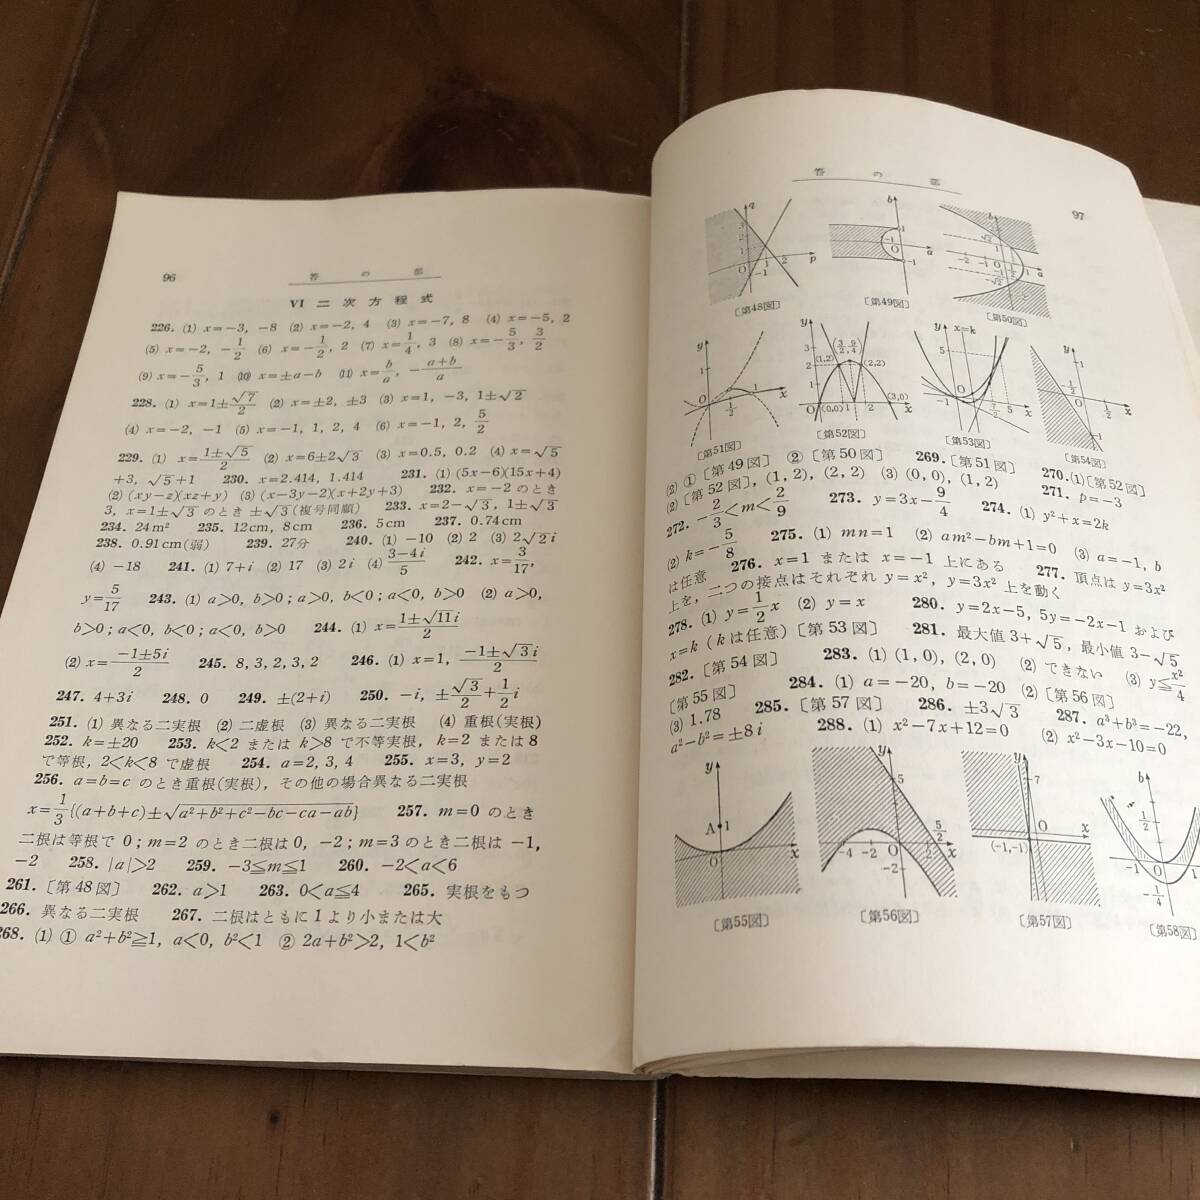 96
答の部
VI 二次方程式
226. (1) x=−3, −8 (2) x=−2, 4 (3) x=−7, 8 (4) x=−5, 2
(5) x=−2, −1/2 (6) x=−1/2, 2 (7) x=1/4, 3 (8) x=−5/3, 3/2
(9) x=−5/3, 1 (10) x=±a−b (11) x=b/a, −(a+b)/a
228. (1) x=1±√7/2 (2) x=±2, ±3 (3) x=1, −3, 1±√2
(4) x=−2, −1 (5) x=−1, 1, 2, 4 (6) x=−1, 2, 5/2
229. (1) x=(1±√5)/2 (2) x=6±2√3 (3) x=0.5, 0.2 (4) x=√5
+3, √5+1 230. x=2.414, 1.414 231. (1) (5x−6)(15x+4)
(2) (xy−z)(xz+y) (3) (x−3y−2)(x+2y+3) 232. x=−2 のとき
3, x=1±√3 のとき ±√3(複号同順) 233. x=2−√3, 1±√3
234. 24m² 235. 12cm, 8cm 236. 5cm 237. 0.74cm
238. 0.91cm(弱) 239. 27分 240. (1) −10 (2) 2 (3) 2√2i
(4) −18 241. (1) 7+i (2) 17 (3) 2i (4) (3−4i)/5 242. x=3/17,
y=5/17 243. (1) a>0, b>0; a>0, b<0; a<0, b>0 (2) a>0,
b>0; a<0, b<0; a<0, b>0 244. (1) x=(1±√11i)/2
(2) x=(−1±5i)/2 245. 8, 3, 2, 3, 2 246. (1) x=1, (−1±√3i)/2
247. 4+3i 248. 0 249. ±(2+i) 250. −i, ±√3/2+1/2i
251. (1) 異なる二実根 (2) 二虚根 (3) 異なる二実根 (4) 重根(実根)
252. k=±20 253. k<2 または k>8 で不等実根, k=2 または8
で等根, 2<k<8 で虚根 254. a=2, 3, 4 255. x=3, y=2
256. a=b=c のとき重根(実根), その他の場合異なる二実根
x=1/3{(a+b+c)±√a²+b²+c²−bc−ca−ab} 257. m=0 のとき
二根は等根で 0; m=2 のとき二根は0, −2; m=3 のとき二根は −1,
−2 258. |a|>2 259. −3≦m≦1 260. −2<a<6
261. 〔第48図〕 262. a>1 263. 0<a≦4 265. 実根をもつ
266. 異なる二実根 267. 二根はともに1より小または大
268. (1) ① a²+b²≧1, a<0, b²<1 ② 2a+b²>2, 1<b²
答の部
97
〔第48図〕
〔第49図〕
〔第50図〕
〔第51図〕
〔第52図〕
〔第53図〕
〔第54図〕
(2) ① 〔第49図〕 ② 〔第50図〕 269. 〔第51図〕 270. (1)〔第52図〕
(2) 〔第52図〕, (1, 2), (2, 2) (3) (0, 0), (1, 2) 271. p=−3
272. −2/3<m<2/9 273. y=3x−9/4 274. (1) y²+x=2k
(2) k=−5/8 275. (1) mn=1 (2) am²−bm+1=0 (3) a=−1, b
は任意 276. x=1 または x=−1 上にある 277. 頂点は y=3x²
上を, 二つの接点はそれぞれ y=x², y=3x² 上を動く
278. (1) y=1/2x (2) y=x 280. y=2x−5, 5y=−2x−1 および
x=k (kは任意)〔第53図〕 281. 最大値 3+√5, 最小値 3−√5
282. 〔第54図〕 283. (1) (1, 0), (2, 0) (2) できない (3) y≦x²/4
〔第55図〕 284. (1) a=−20, b=−20 (2) 〔第56図〕
(3) 1.78 285. 〔第57図〕 286. ±3√3 287. a³+b³=−22,
a²−b²=±8i 288. (1) x²−7x+12=0 (2) x²−3x−10=0
〔第55図〕
〔第56図〕
〔第57図〕
〔第58図〕